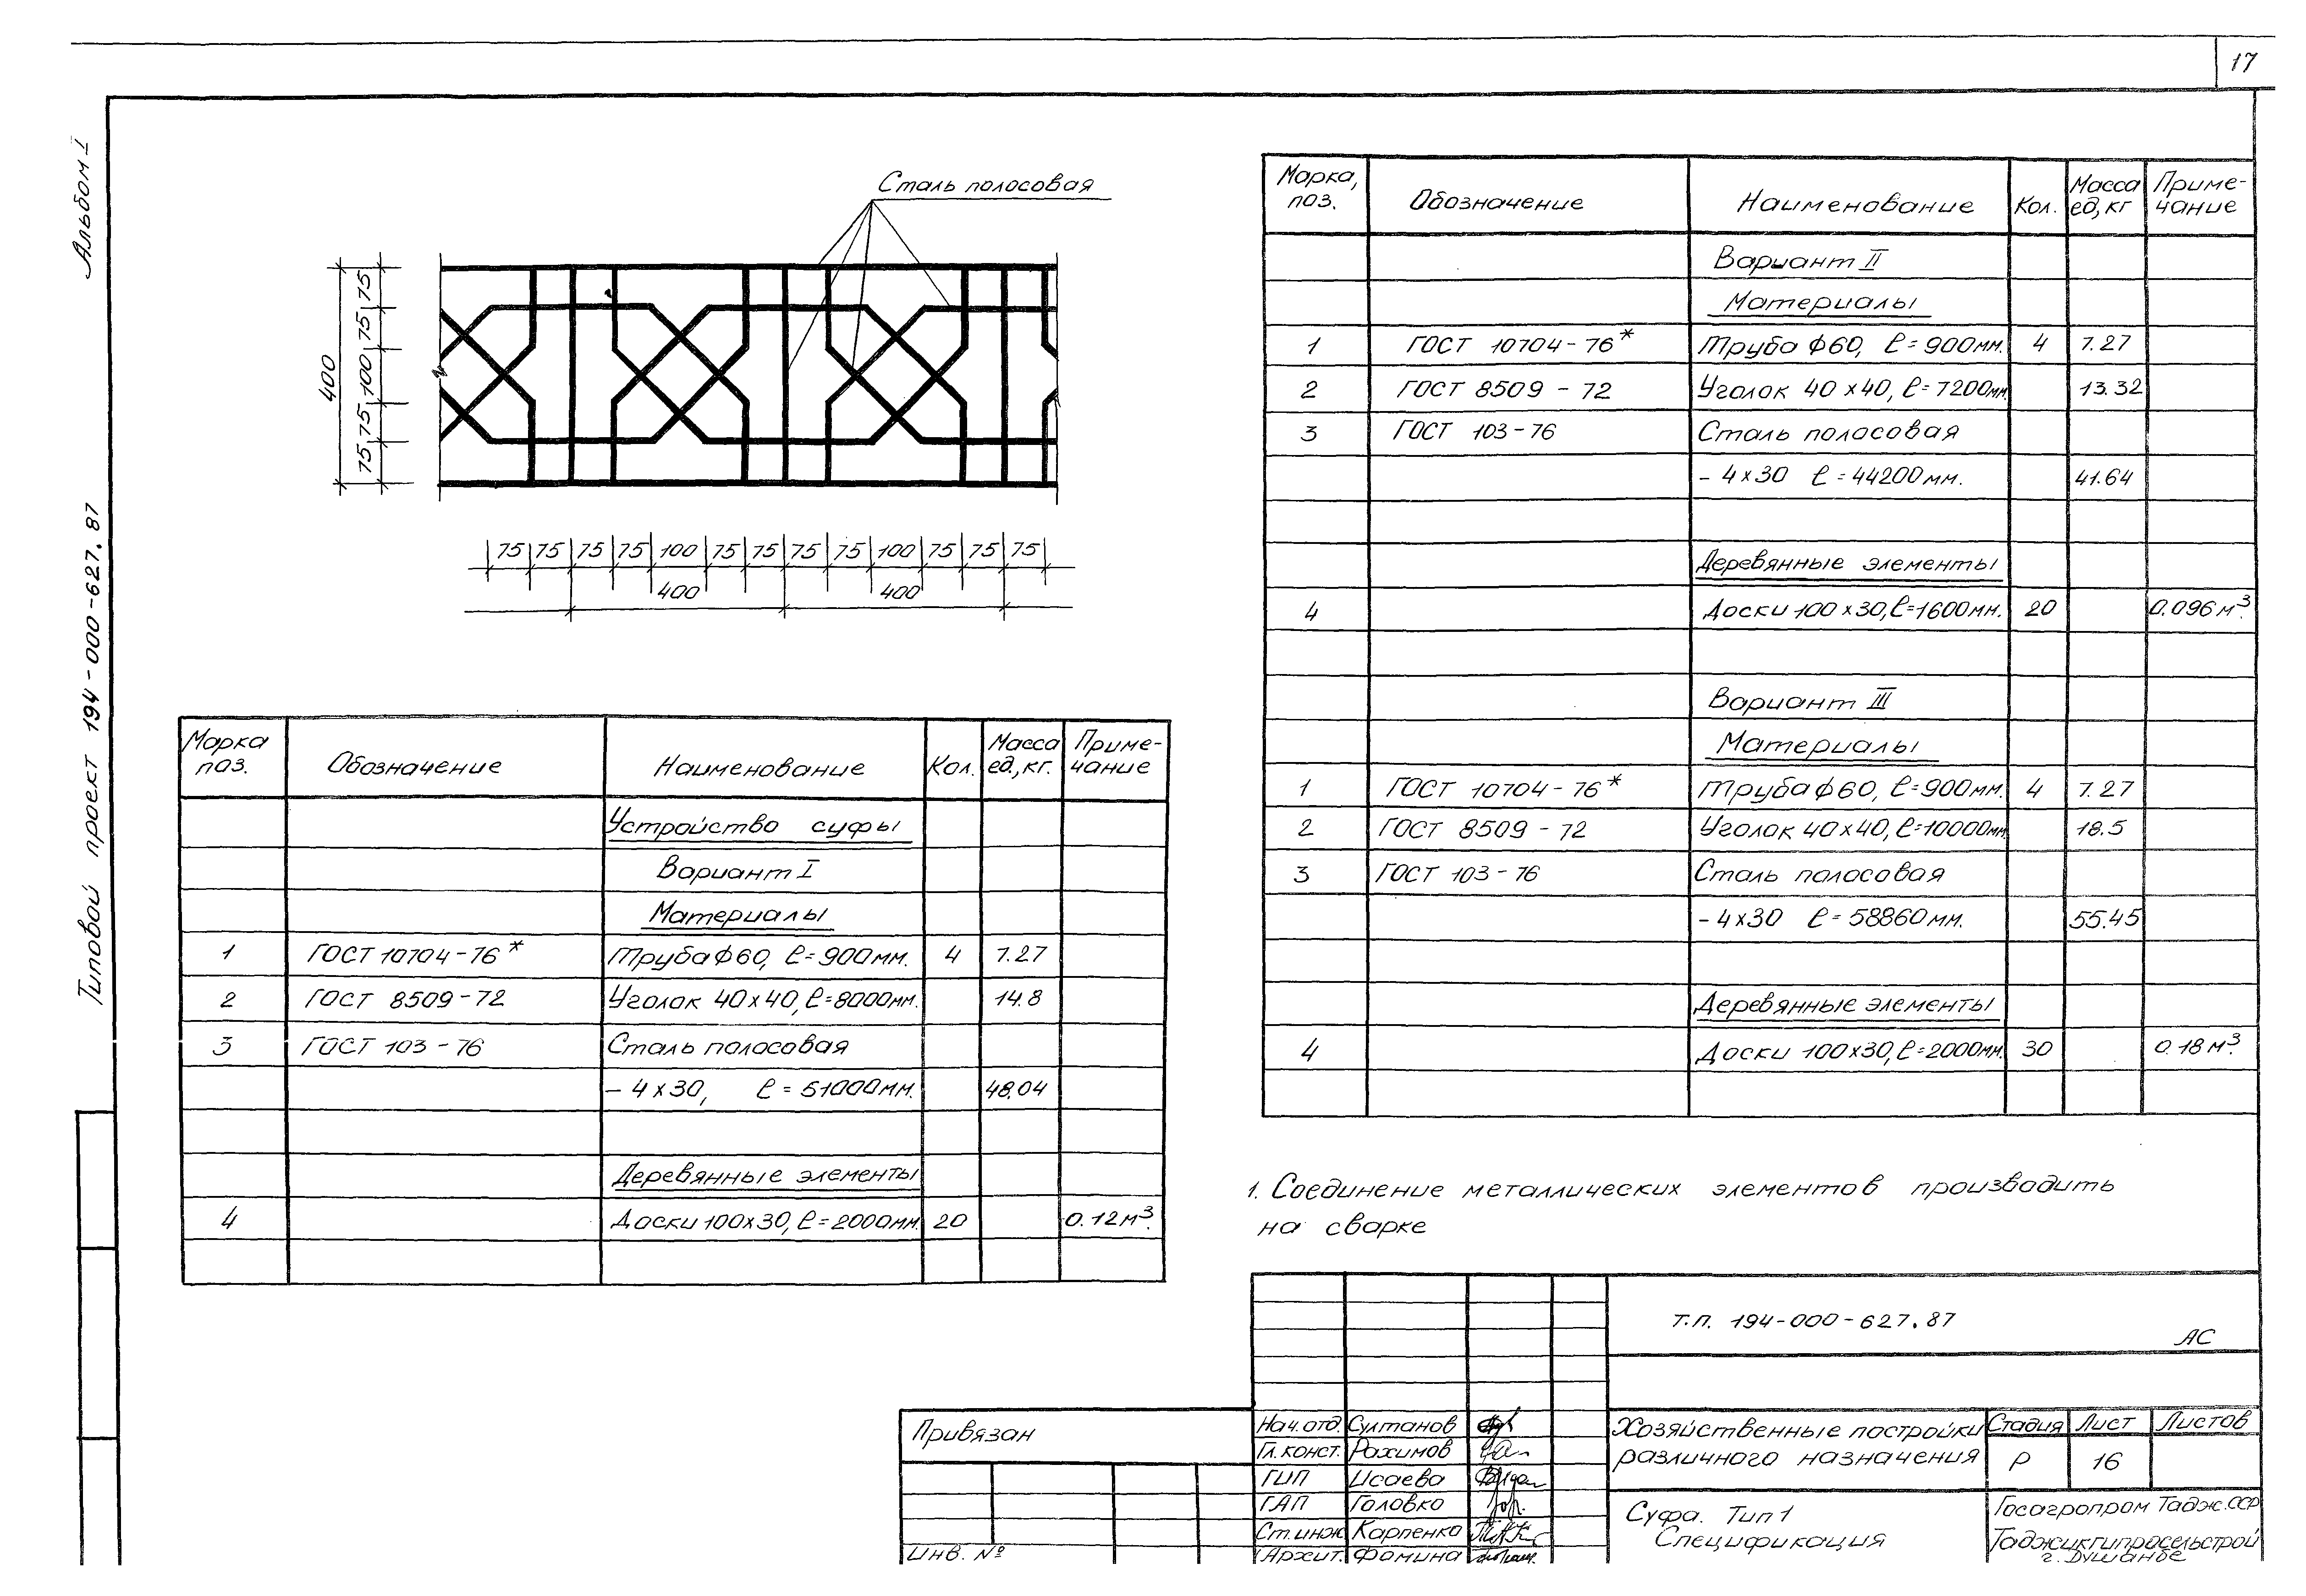 17
Альбом I
Типовой проект 194-000-627.87
Сталь полосовая
400
75 75 100 75 75
75 75 75 75 100 75 75 75 75 100 75 75 75
400 400
Марка поз. Обозначение Наименование Кол. Масса ед., кг. Приме-чание
Устройство суфы
Вариант I
Материалы
1 ГОСТ 10704-76* Труба ф60, ℓ=900мм. 4 7.27
2 ГОСТ 8509-72 Уголок 40х40, ℓ=8000мм. 14.8
3 ГОСТ 103-76 Сталь полосовая
- 4х30, ℓ = 51000мм. 48.04
Деревянные элементы
4 Доски 100х30, ℓ=2000мм. 20 0.12м³.
Марка, поз. Обозначение Наименование Кол. Масса ед, кг Приме-чание
Вариант II
Материалы
1 ГОСТ 10704-76* Труба ф60, ℓ=900мм. 4 7.27
2 ГОСТ 8509-72 Уголок 40х40, ℓ=7200мм. 13.32
3 ГОСТ 103-76 Сталь полосовая
- 4х30 ℓ=44200мм. 41.64
Деревянные элементы
4 Доски 100х30, ℓ=1600мм. 20 0.096м³.
Вариант III
Материалы
1 ГОСТ 10704-76* Труба ф60, ℓ=900мм. 4 7.27
2 ГОСТ 8509-72 Уголок 40х40, ℓ=10000мм. 18.5
3 ГОСТ 103-76 Сталь полосовая
- 4х30 ℓ=58860мм. 55.45
Деревянные элементы
4 Доски 100х30, ℓ=2000мм. 30 0.18м³.
1. Соединение металлических элементов производить
на сварке
т.п. 194-000-627.87
АС
Привязан
Инв. №
Нач. отд. Султанов
Гл. конст. Рахимов
ГИП Исаева
ГАП Головко
Ст. инж Карпенко
Архит. Фомина
Хозяйственные постройки
различного назначения
Стадия Лист Листов
Р 16
Суфа. Тип 1
Спецификация
Госагропром Тадж.ССР
Таджикгипросельстрой
г. Душанбе